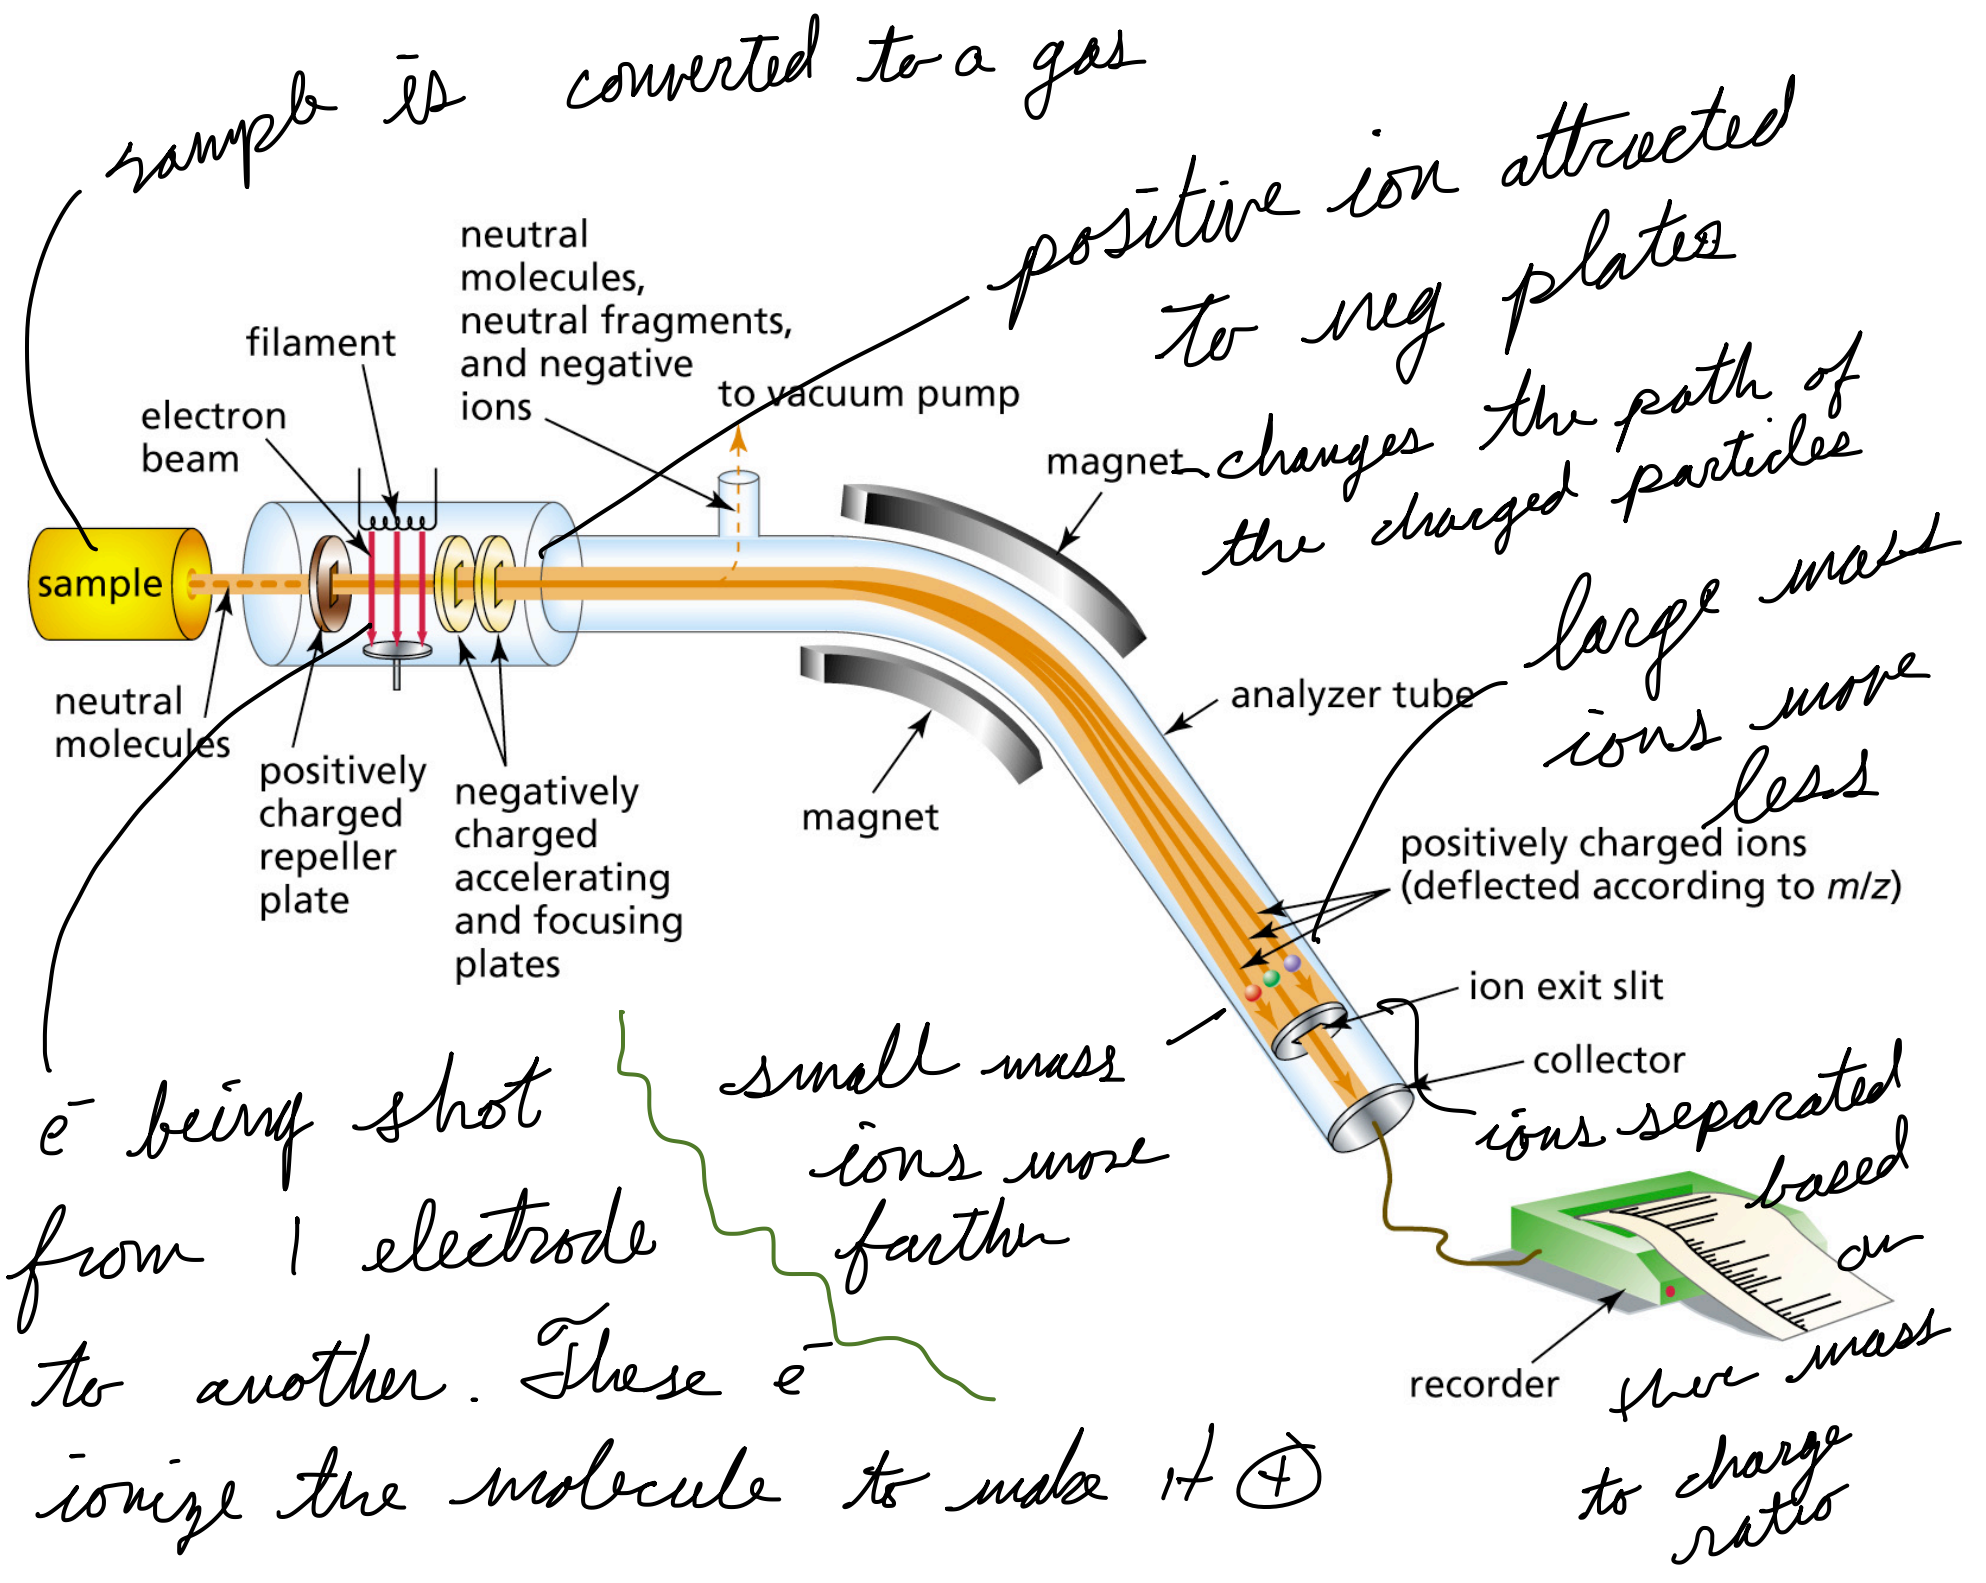 sample is converted to a gas
positive ion attracted
to neg plates
neutral
molecules,
neutral fragments,
and negative
ions
filament
to vacuum pump
electron
beam
magnet
changes the path of
the charged particles
sample
large mass
ions move
less
neutral
molecules
analyzer tube
positively
charged
repeller
plate
negatively
charged
accelerating
and focusing
plates
magnet
positively charged ions
(deflected according to m/z)
ion exit slit
collector
small mass
ions move
farther
ions separated
based
on
there mass
to charge
ratio
recorder
e⁻ being shot
from 1 electrode
to another. These e⁻
ionize the molecule to make it ⊕